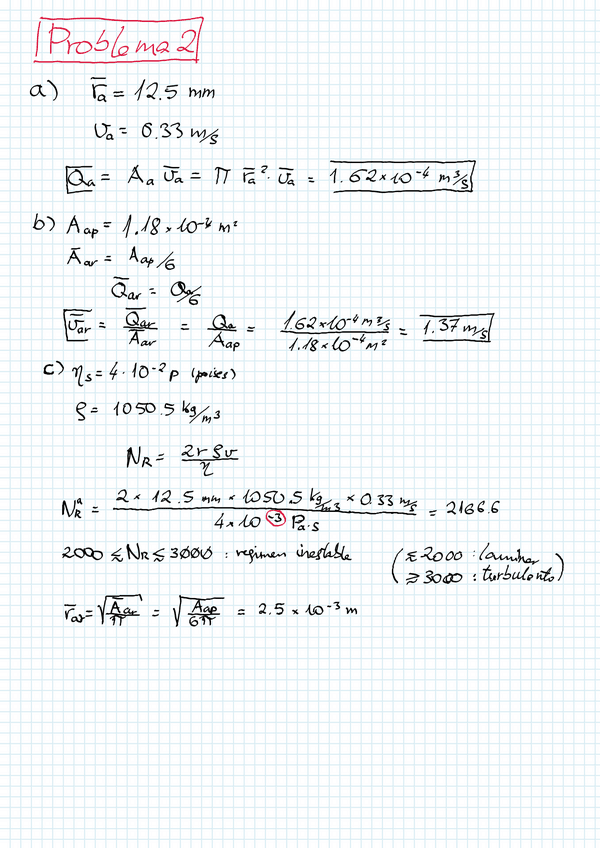 Problema 2
a) r̄a = 12.5 mm
va = 0.33 m/s
Q̄a = Aa v̄a = π r̄a² · v̄a = 1.62 × 10⁻⁴ m³/s
b) Aap = 1.18 × 10⁻⁴ m²
Āar = Aap/6
Q̄ar = Qa/6
v̄ar = Q̄ar/Āar = Qa/Aap = 1.62×10⁻⁴ m³/s / 1.18×10⁻⁴ m² = 1.37 m/s
c) ηs = 4 · 10⁻² P (poises)
ρ = 1050.5 kg/m³
NR = 2rρv/η
NRᵃ = 2 × 12.5 mm × 1050.5 kg/m³ × 0.33 m/s / 4×10⁻³ Pa·s = 2166.6
2000 ≲ NR ≲ 3000 : regimen inestable (≲ 2000 : laminar
≳ 3000 : turbulento)
r̄ar = √(Āar/π) = √(Aap/6π) = 2.5 × 10⁻³ m